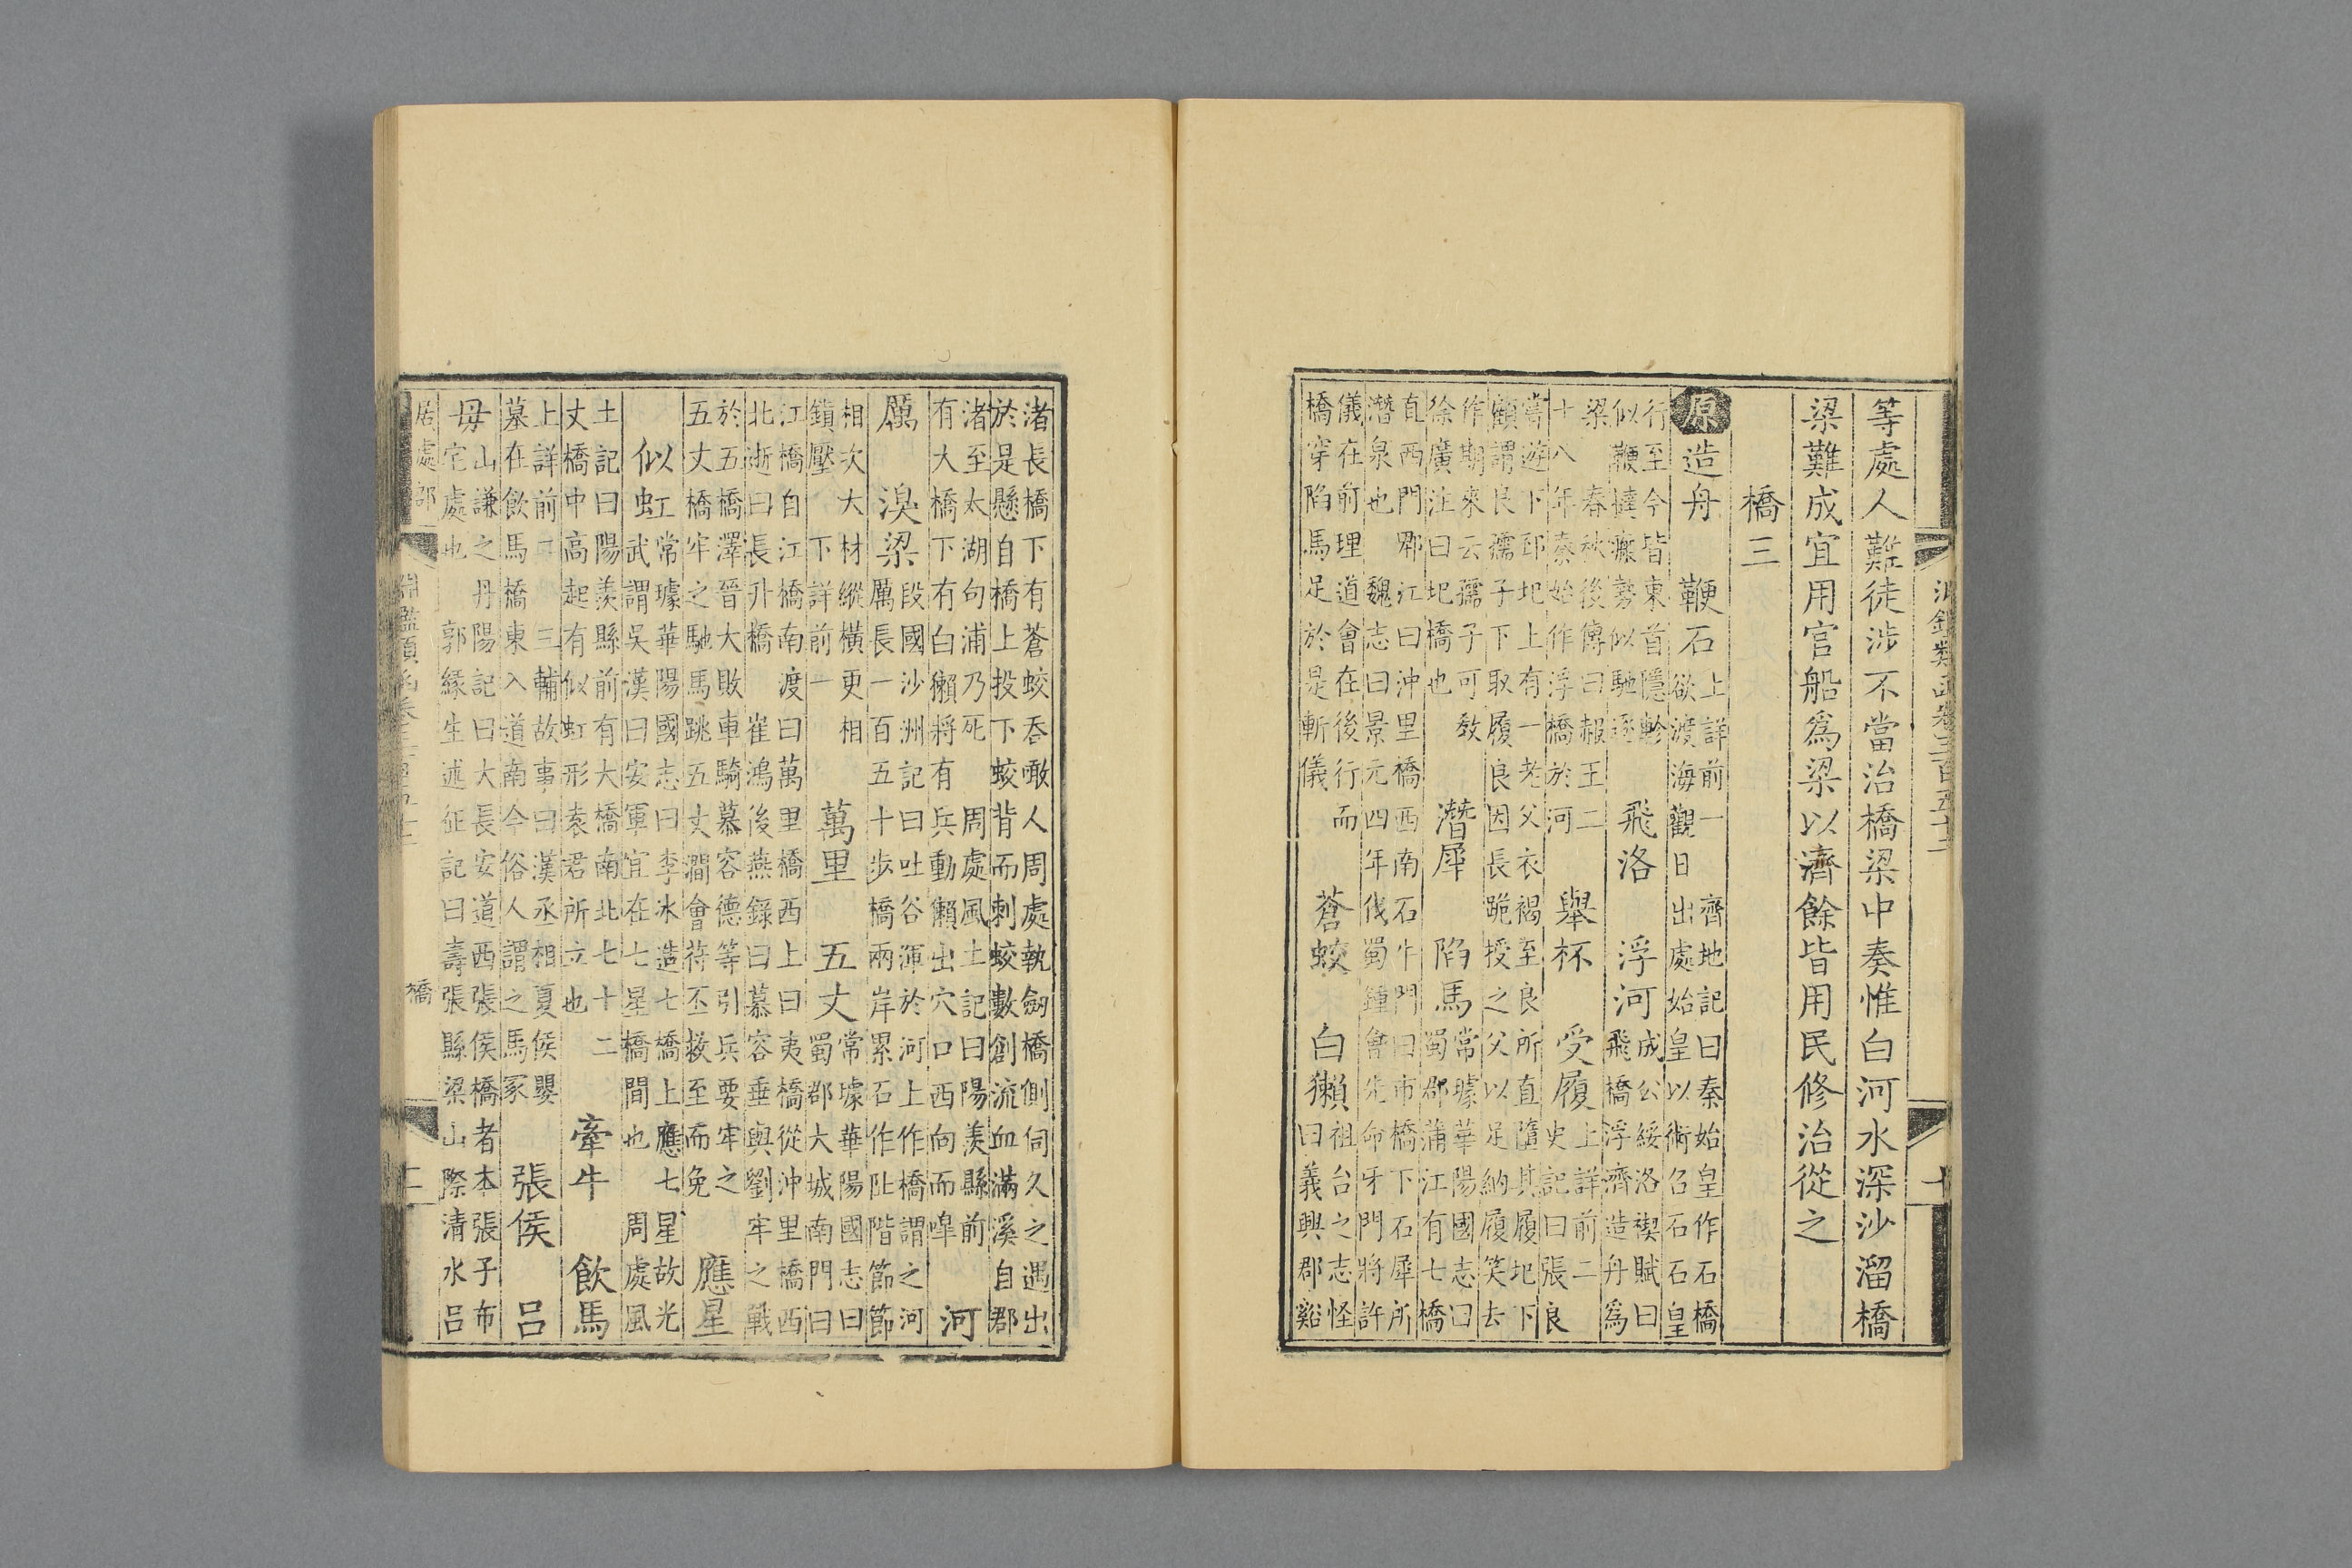 淵鑑類函卷三百五十二 十
等處人難徒涉不當治橋梁中奏惟白河水深沙溜橋
梁難成宜用官船爲梁以濟餘皆用民修治從之
橋三
原 造舟 鞭石 上詳前一 齊地記曰秦始皇作石橋
欲渡海觀日出處始皇以術召石石皇
行至今皆東首隱軫
似鞭撻瘢勢似馳逐
飛洛 浮河 成公綏洛禊賦曰
飛橋浮濟造舟爲
梁 春秋後傳曰赧王二
十八年秦始作浮橋於河
舉杯 受履 上詳前二
史記曰張良
嘗遊下邳圯上有一老父衣褐至良所直墮其履圯下
顧謂良孺子下取履良因長跪授之父以足納履笑去
作期來云孺子可敎
徐廣注曰圯橋也
潛犀 陷馬 常璩華陽國志曰
蜀郡蒲江有七橋
直西門郫江曰沖里橋西南石牛門曰市橋下石犀所
潛泉也 魏志曰景元四年伐蜀鍾會先命牙門將許
儀在前理道會在後行而
橋穿陷馬足於是斬儀
蒼蛟 白獺 祖台之志怪
曰義興郡谿
渚長橋下有蒼蛟吞噉人周處執劒橋側伺久之遇出
於是懸自橋上投下蛟背而刺蛟數創流血滿溪自郡
渚至太湖句浦乃死 周處風土記曰陽羨縣前
有大橋下有白獺將有兵動獺出穴口西向而嘷
河
厲 溴梁 段國沙洲記曰吐谷渾於河上作橋謂之河
厲長一百五十步橋兩岸累石作阯階節節
相次大材縱橫更相
鎖壓 下詳前一
萬里 五丈 常璩華陽國志曰
蜀郡大城南門曰
江橋自江橋南渡曰萬里橋西上曰夷橋從沖里橋西
北逝曰長升橋 崔鴻後燕錄曰慕容垂與劉牢之戰
於五橋澤晉大敗車騎慕容德等引兵要牢之
五丈橋牢之馳馬跳五丈澗會苻丕救至而免
應星
似虹 常璩華陽國志曰李冰造七橋上應七星故光
武謂吳漢曰安軍宜在七星橋間也 周處風
土記曰陽羨縣前有大橋南北七十二
丈橋中高起有似虹形袁君所立也
牽牛 飮馬
上詳前二 三輔故事曰漢丞相夏侯嬰
墓在飮馬橋東入道南今俗人謂之馬冢
張侯 呂
母 山謙之丹陽記曰大長安道西張侯橋者本張子布
宅處也 郭緣生述征記曰壽張縣梁山際清水呂
居處部 淵鑑類函卷三百五十二 橋